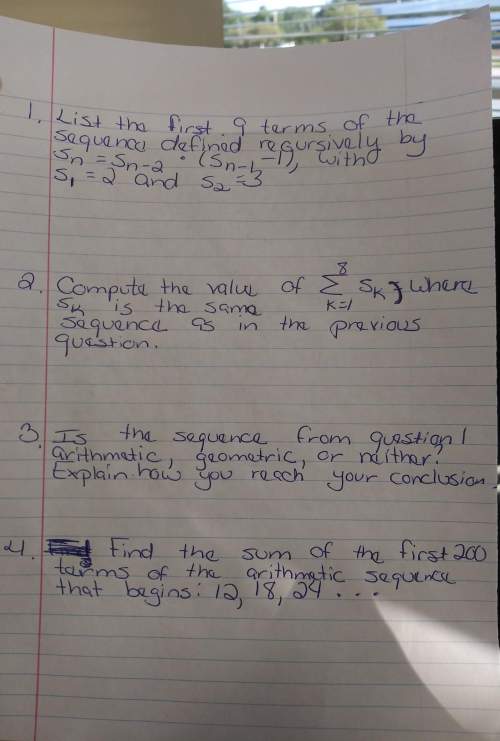 1. List the first 9 terms of the
sequence defined recursively by
Sn = Sn-2 · (Sn-1 -1), with
S1 = 2 and S2 = 3
2. Compute the value of 8∑k=1 SK, where
SK is the same
sequence as in the previous
question.
3. Is the sequence from question 1
arithmetic, geometric, or neither?
Explain how you reach your conclusion.
4. Find the sum of the first 200
terms of the arithmetic sequence
that begins: 12, 18, 24 ...